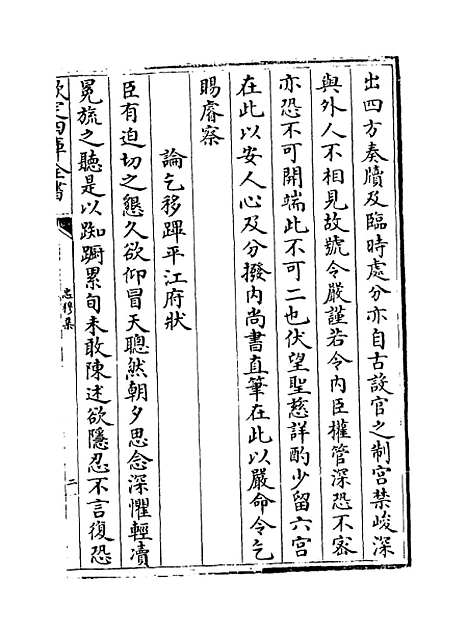 出四方奏牘及臨時處分亦自古設官之制宮禁峻深
與外人不相見故號令嚴謹若令內臣權管深恐不密
亦恐不可開端此不可二也伏望聖慈詳酌少留六宮
在此以安人心及分撥内尚書直筆在此以嚴命令乞
賜睿察
論乞移蹕平江府狀
臣有迫切之懇久欲仰冒天聰然朝夕思念深懼輕瀆
冕旒之聽是以踟躕累旬未敢陳述欲隱忍不言復恐
欽定四庫全書
忠穆集
二